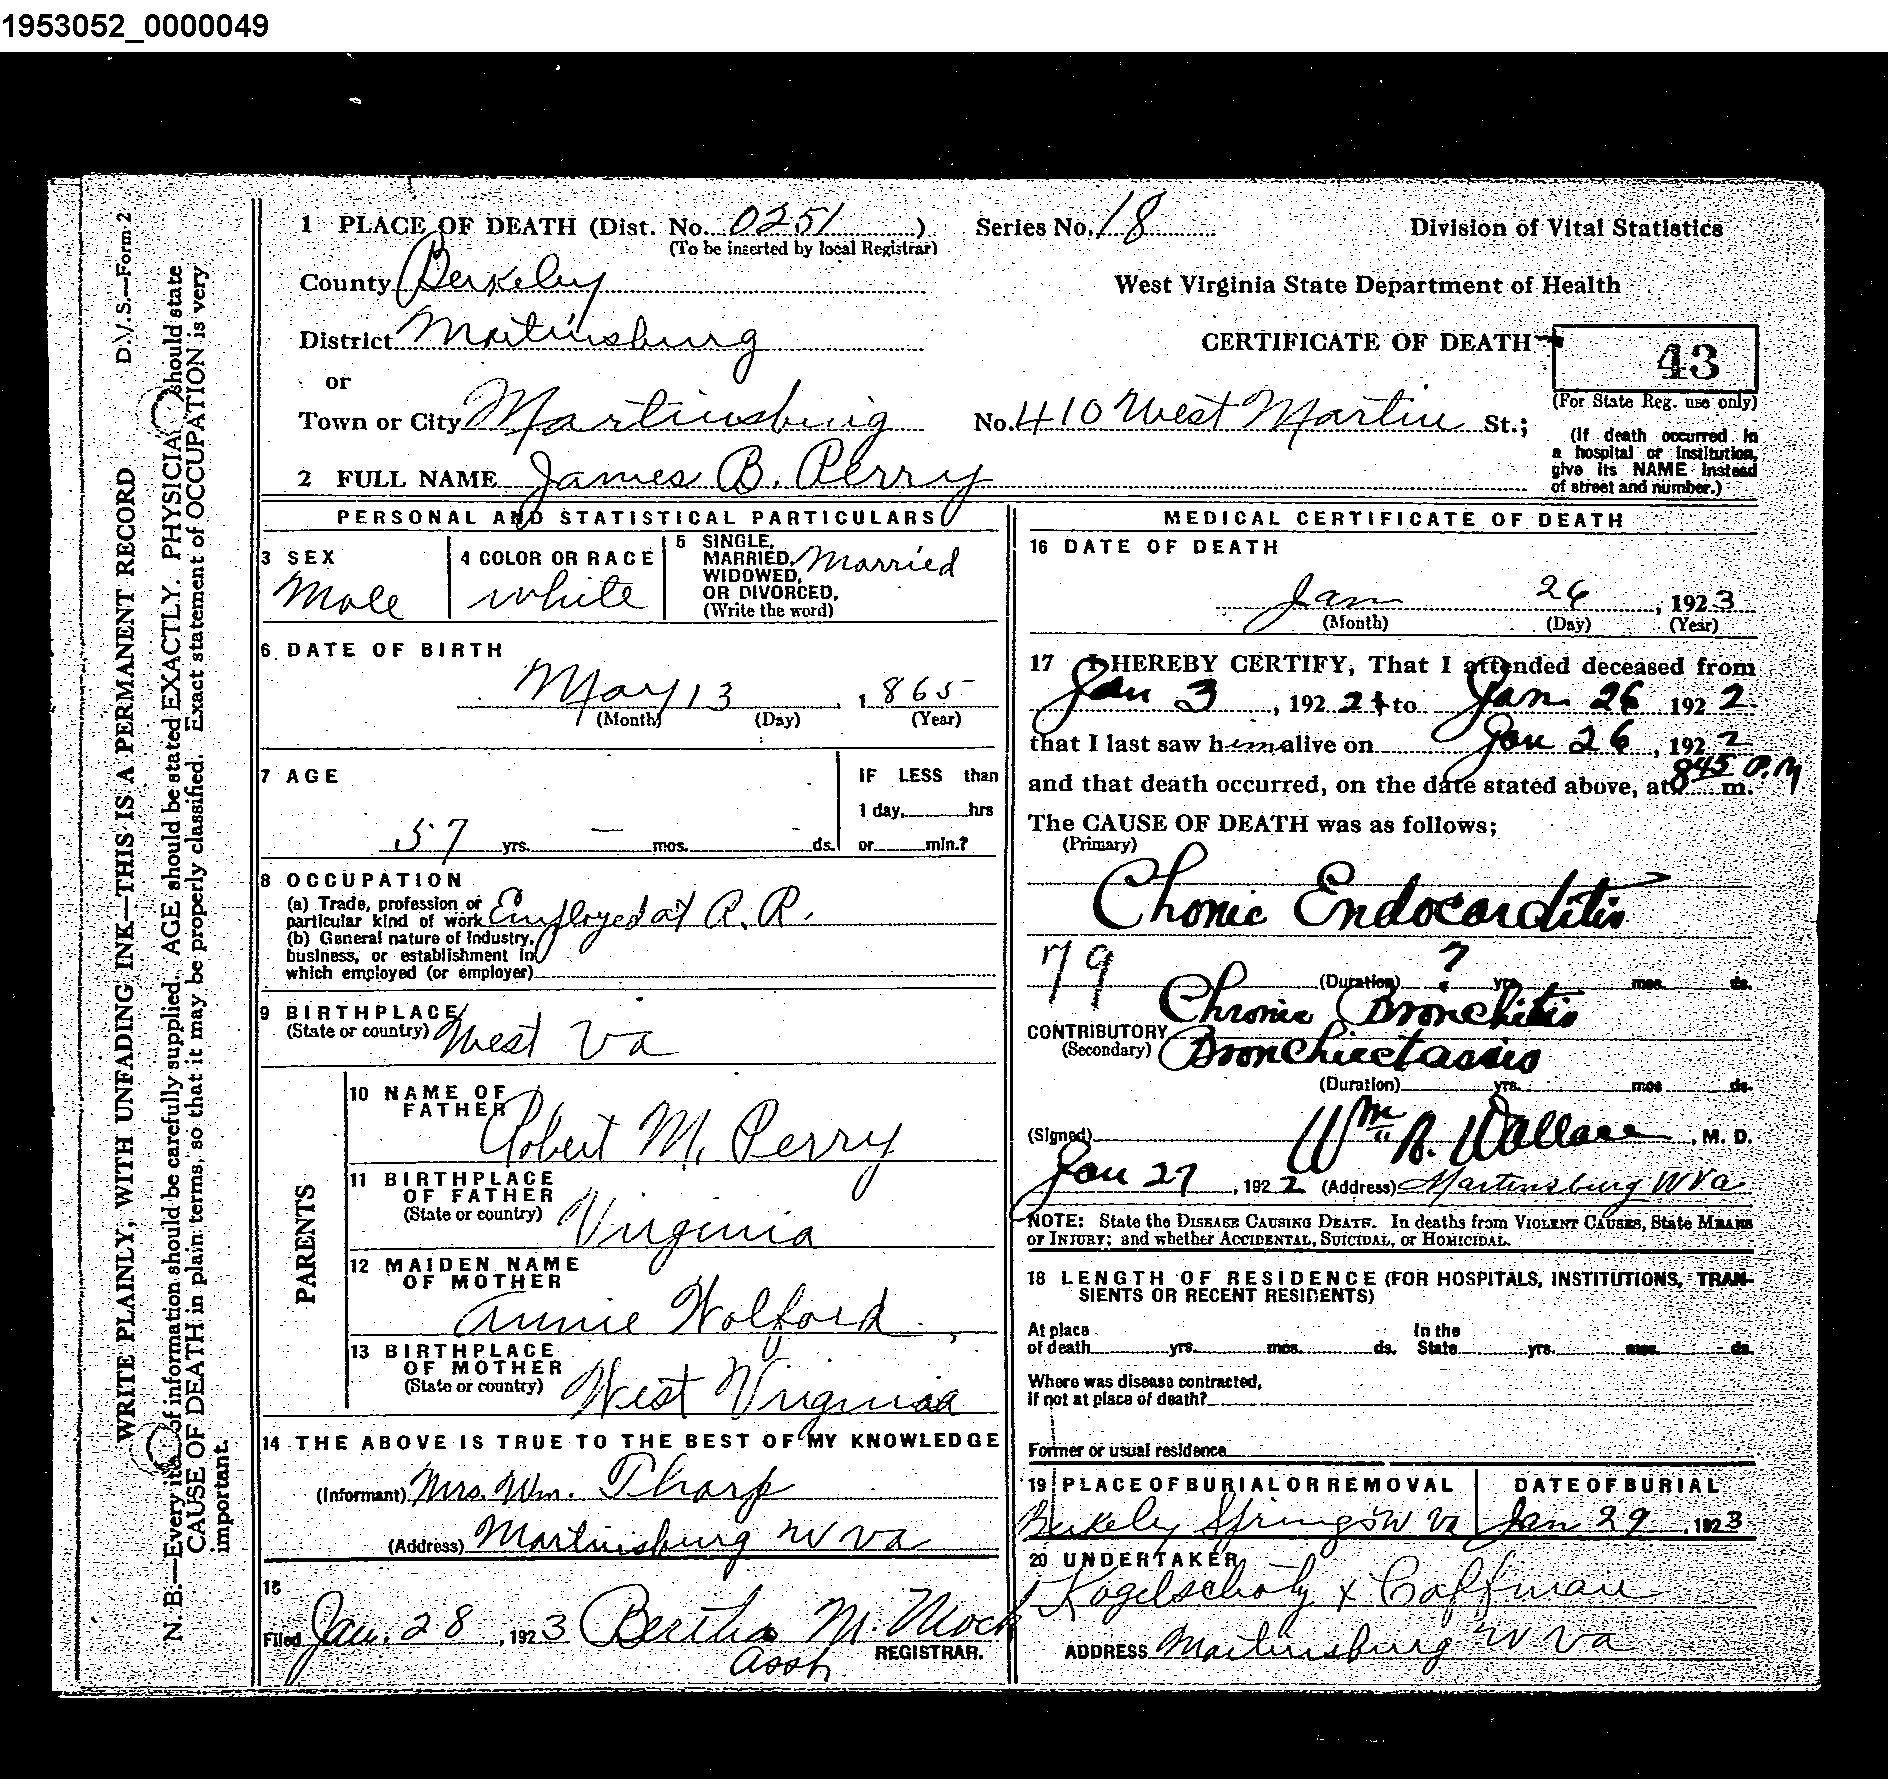 1953052_0000049
1 PLACE OF DEATH (Dist. No. 0251 ) Series No. 18 Division of Vital Statistics
(To be inserted by local Registrar)
County Berkeley West Virginia State Department of Health
District Martinsburg CERTIFICATE OF DEATH 43
or
Town or City Martinsburg No. 410 West Martin St.; (For State Reg. use only)
(If death occurred in
a hospital or institution,
give its NAME instead
of street and number.)
2 FULL NAME James B. Perry
PERSONAL AND STATISTICAL PARTICULARS
3 SEX
Male
4 COLOR OR RACE
white
5 SINGLE,
MARRIED, Married
WIDOWED,
OR DIVORCED,
(Write the word)
6 DATE OF BIRTH
May 13 , 1865
(Month) (Day) (Year)
7 AGE
57 yrs. — mos. — ds.
IF LESS than
1 day, hrs
or min.?
8 OCCUPATION
(a) Trade, profession or
particular kind of work Employed at R.R.
(b) General nature of Industry,
business, or establishment in
which employed (or employer)
9 BIRTHPLACE
(State or country) West Va
PARENTS
10 NAME OF
FATHER Robert M. Perry
11 BIRTHPLACE
OF FATHER
(State or country) Virginia
12 MAIDEN NAME
OF MOTHER
Annie Wolford
13 BIRTHPLACE
OF MOTHER
(State or country) West Virginia
14 THE ABOVE IS TRUE TO THE BEST OF MY KNOWLEDGE
(Informant) Mrs. Wm. Tharp
(Address) Martinsburg W Va
15
Filed Jan. 28 , 1923 Bertha M. Mock
Asst. REGISTRAR.
MEDICAL CERTIFICATE OF DEATH
16 DATE OF DEATH
Jan 26 , 1923
(Month) (Day) (Year)
17 I HEREBY CERTIFY, That I attended deceased from
Jan 3 , 192 2 to Jan 26 192 2.
that I last saw him alive on Jan 26 , 192 2
and that death occurred, on the date stated above, at 845 P.M m.
The CAUSE OF DEATH was as follows;
(Primary)
Chonic Endocarditis
79 (Duration) ? yrs. mos. ds.
Chronic Bronchitis
CONTRIBUTORY
(Secondary) Bronchiectasis
(Duration) yrs. mos ds.
(Signed) Wm A. Wallace , M. D.
Jan 27 , 192 2 (Address) Martinsburg W Va
NOTE: State the DISEASE CAUSING DEATH. In deaths from VIOLENT CAUSES, State MEANS
OF INJURY; and whether ACCIDENTAL, SUICIDAL, or HOMICIDAL.
18 LENGTH OF RESIDENCE (FOR HOSPITALS, INSTITUTIONS, TRAN-
SIENTS OR RECENT RESIDENTS)
At place In the
of death yrs. mos. ds. State yrs. mos. ds.
Where was disease contracted,
if not at place of death?
Former or usual residence
19 PLACE OF BURIAL OR REMOVAL DATE OF BURIAL
Berkeley Springs W Va Jan 29 , 1923
20 UNDERTAKER
Kogelschatz & Coffman
ADDRESS Martinsburg W Va
D.V.S.—Form 2
WRITE PLAINLY, WITH UNFADING INK—THIS IS A PERMANENT RECORD
N. B.—Every item of information should be carefully supplied. AGE should be stated EXACTLY. PHYSICIAN should state
CAUSE OF DEATH in plain terms, so that it may be properly classified. Exact statement of OCCUPATION is very
important.